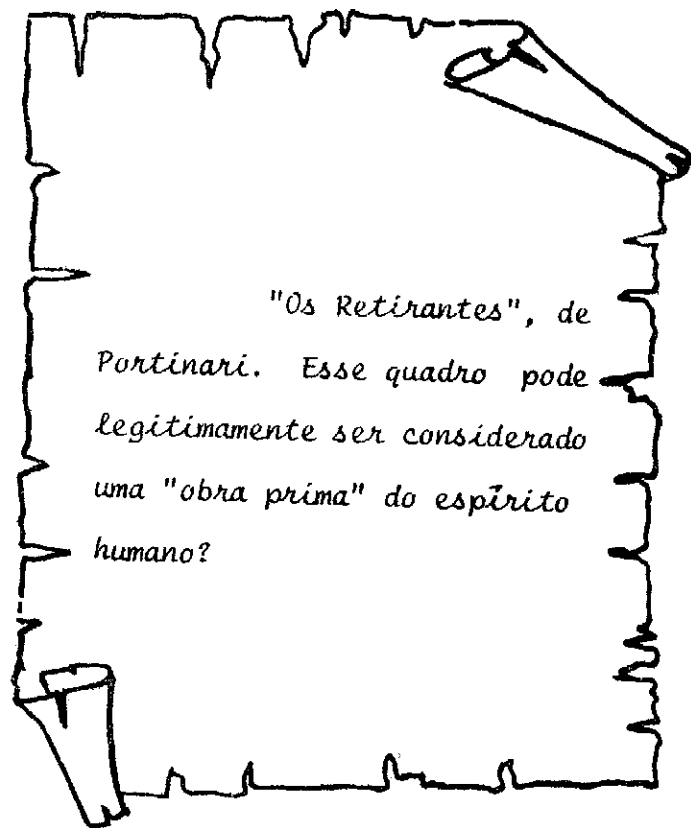 "Os Retirantes", de
Portinari. Esse quadro pode
legitimamente ser considerado
uma "obra prima" do espírito
humano?